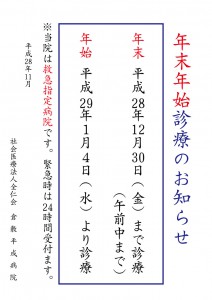 年末年始診療のお知らせ
年末 平成28年12月30日(金)まで診療
(午前中まで)
年始 平成29年1月4日(水)より診療
※当院は救急指定病院です。緊急時は24時間受付ます。
平成28年11月
社会医療法人全仁会 倉敷平成病院